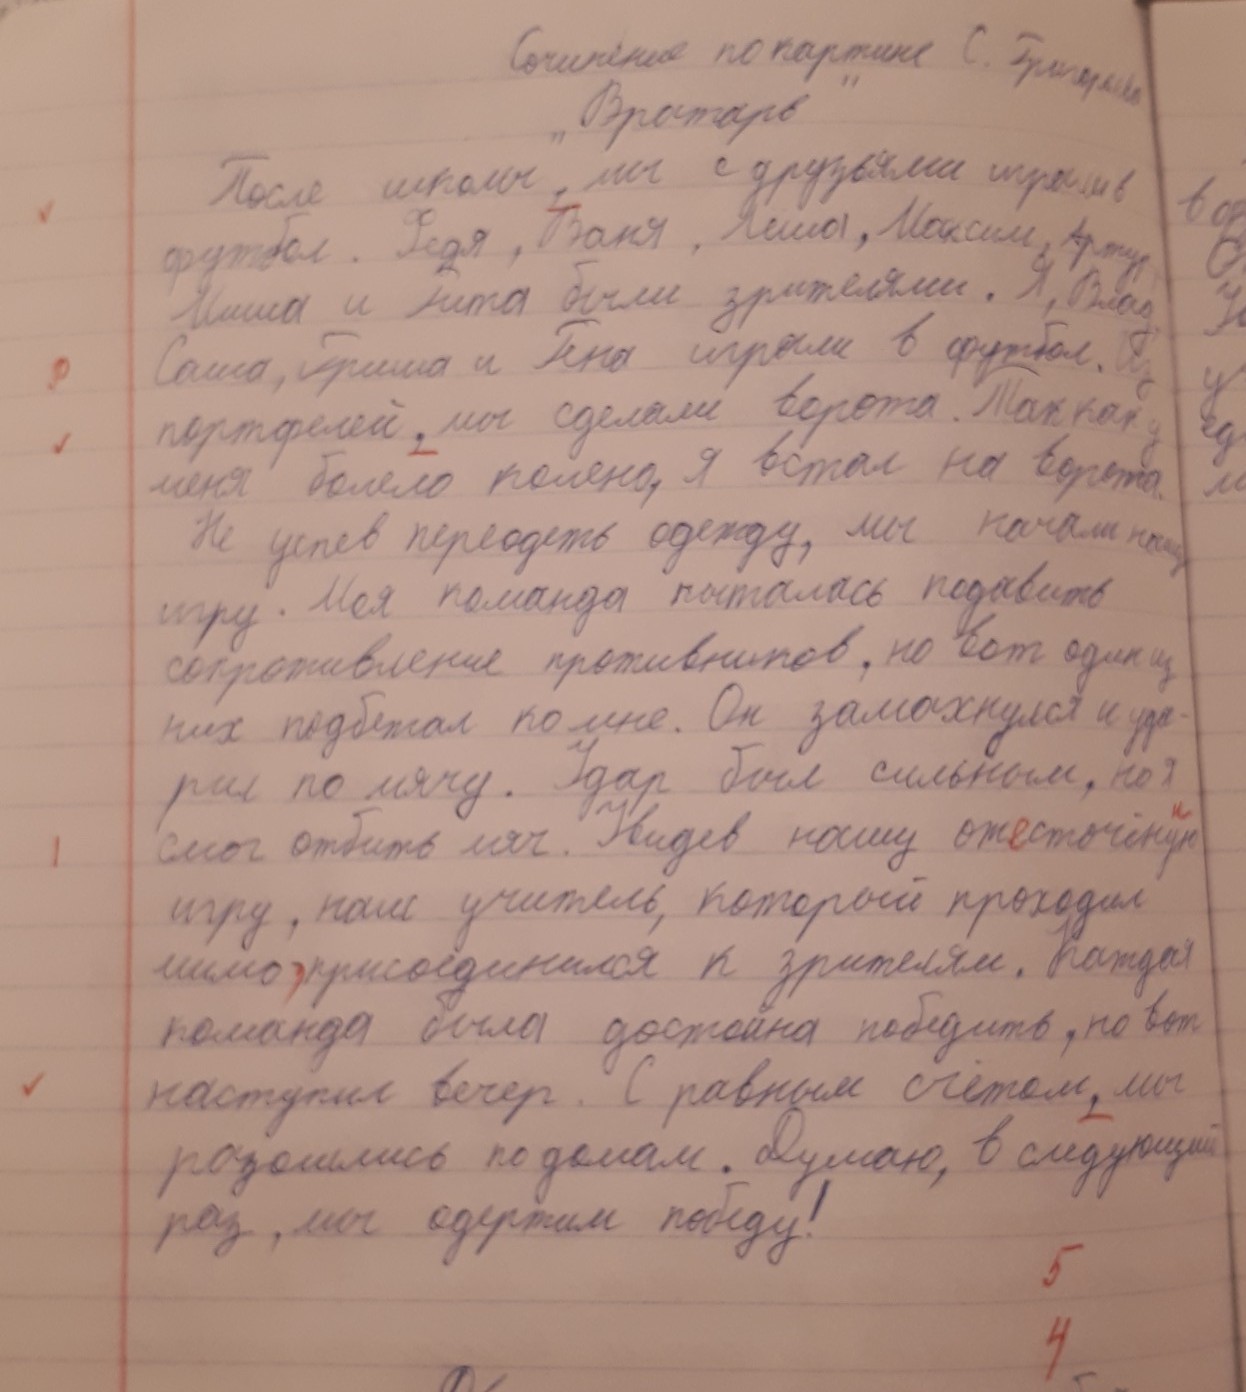 Сочинение по картине С. Григорьева
„Вратарь"
После школы, мы с друзьями играли в
футбол. Федя, Ваня, Леша, Максим, Артур,
Миша и Никита были зрителями. Я, Влад,
Саша, Гриша и Гена играли в футбол. Из
портфелей, мы сделали ворота. Так как у
меня болело колено, я встал на ворота.
Не успев переодеть одежду, мы начали нашу
игру. Моя команда пыталась подавить
сопротивление противников, но вот один из
них подбежал ко мне. Он замахнулся и уда-
рил по мячу. Удар был сильным, но я
смог отбить мяч. Увидев нашу ожесточёную
н
игру, наш учитель, который проходил
мимо, присоединился к зрителям. Каждая
команда была достойна победить, но вот
наступил вечер. С равным счётом, мы
разошлись по домам. Думаю, в следующий
раз, мы одержим победу!
5
4